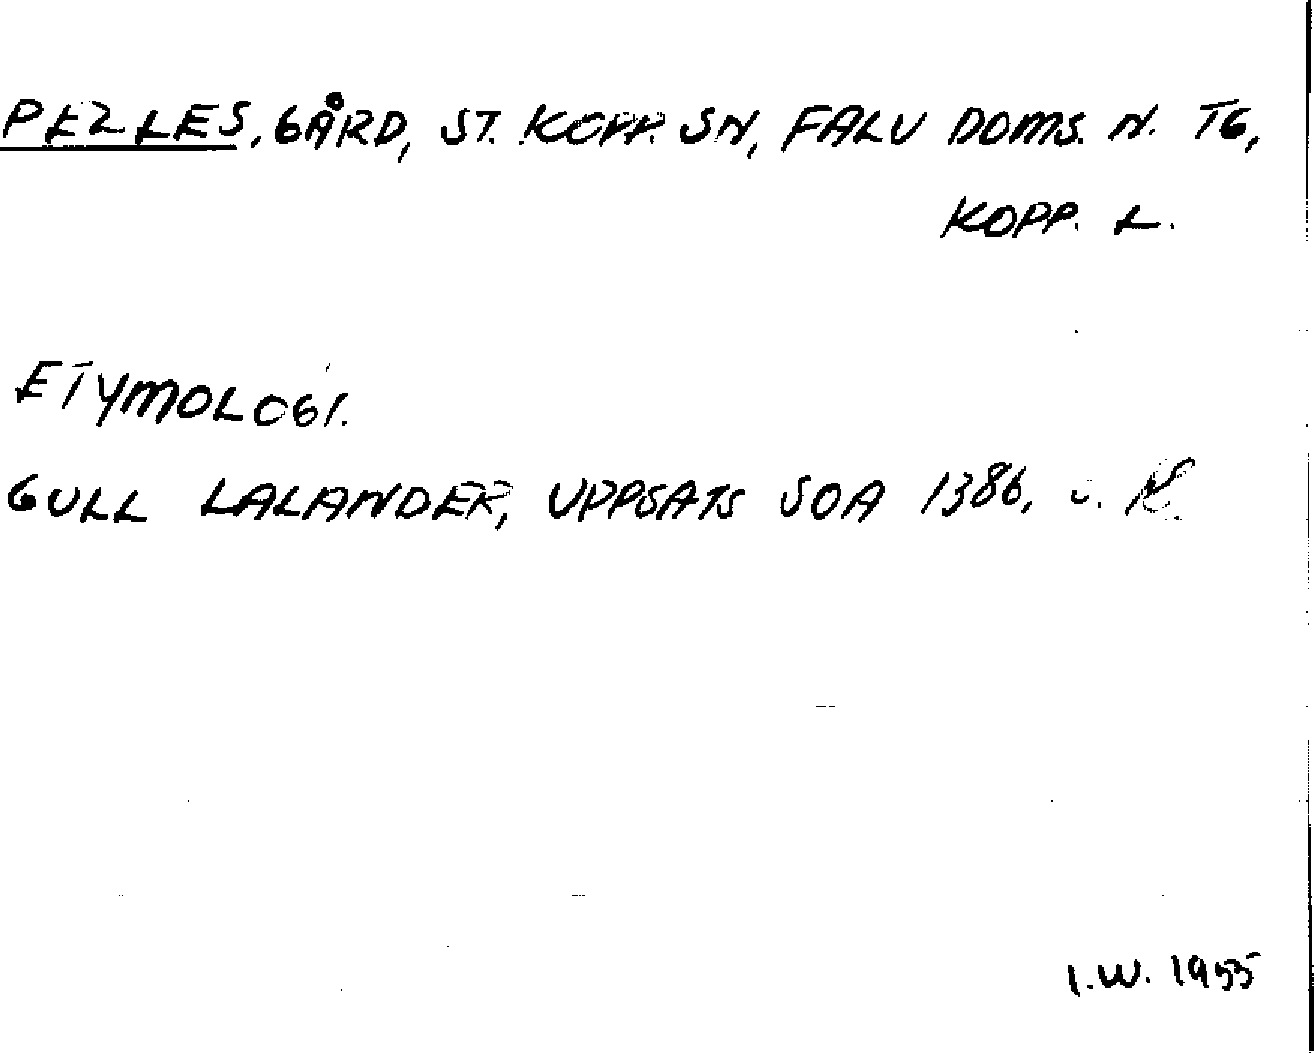 PELLES, GÅRD, ST. KOPP. SN, FALU DOMS. N. TG,
KOPP. L.
ETYMOLOGI.
GULL LALANDER, UPPSATS SOA 1386,
I.W. 1955